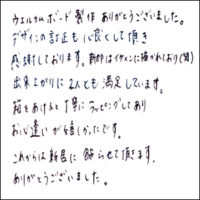 ウェルカムボード製作ありがとうございました。
デザインの訂正も心良くして頂き
感謝しております。新郎はイケメンに描かれており(笑)
出来上がりに2人とも満足しています。
箱をあけると丁寧にラッピングしてあり
お心遣いが嬉しかったです。
これからは新居に飾らせて頂きます。
ありがとうございました。